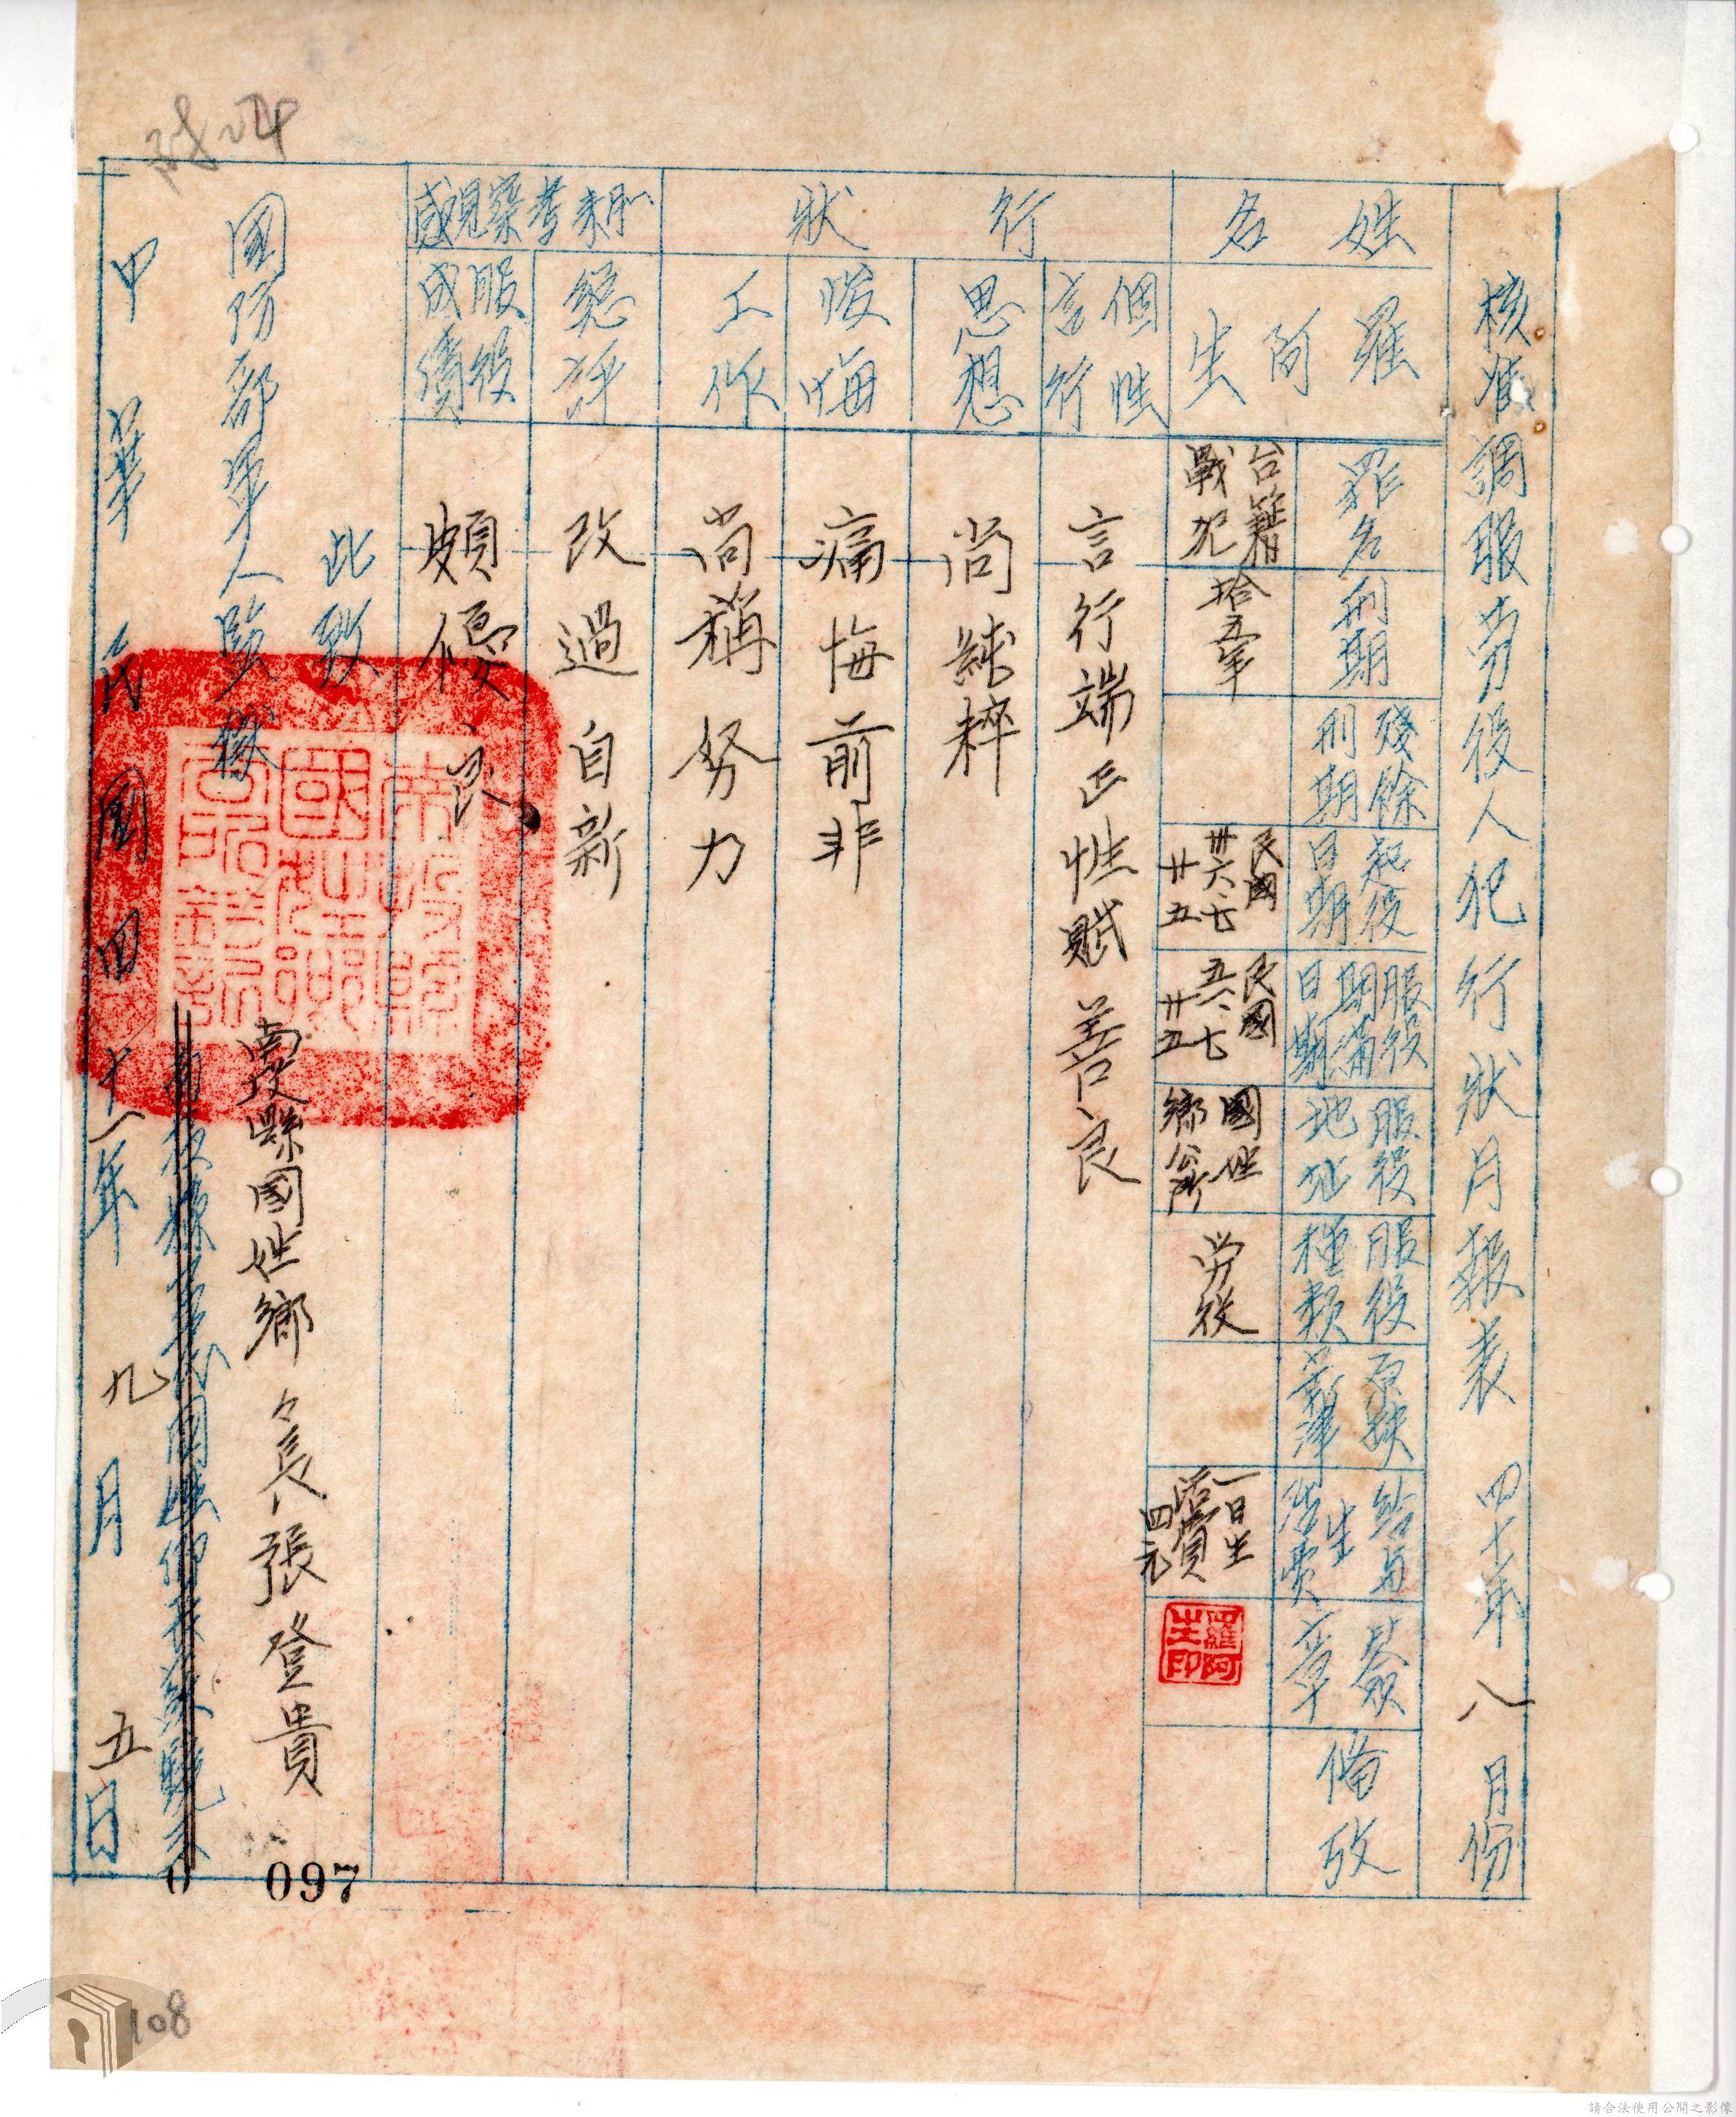 核准調服勞役人犯行狀月報表 四十年八月份
姓名
羅阿生
罪名
台籍戰犯
刑期
拾五年
殘餘刑期
起役日期
民國卅六、七廿五
服役期滿日期
民國五一、七廿五
服役地址
國姓鄉公所
服役種類
勞役
原缺薪津
給與生活費
一日生活費四元
簽章
羅阿生印
備攷
行狀
個性言行
言行端正性賦善良
思想
尚純粹
悛悔
痛悔前非
工作
尚稱努力
總評
改過自新
服役成績
頗優良
此致
國防部軍人監獄
南投縣國姓鄉々長張登貴
中華民國四十一年九月五日
南投縣國姓鄉公所印
097
108
請合法使用公開之影像